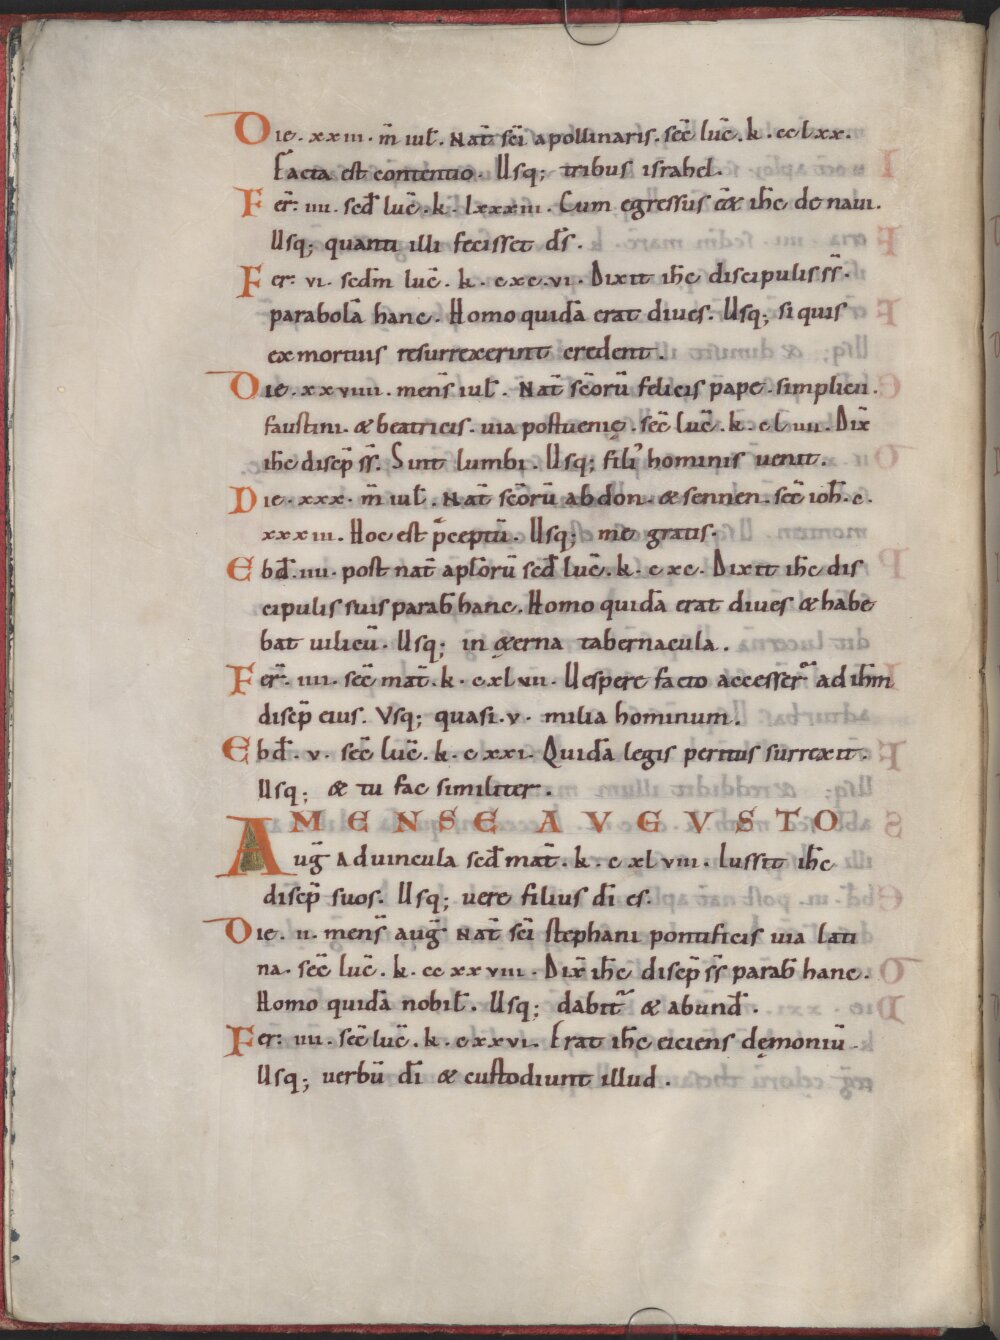 Die. xxiii. m̄ iul̄. Nat̄ sc̄i apollinaris. sec̄ luc̄. k. cclxx.
Facta est contentio. Usq; tribus israhel.
Fer̄. iiii. sed̄ luc̄. k. lxxxiii. Cum egressus e&̄ ih̄c de naui.
Usq; quanti illi fecisset d̄s.
Fer̄. vi. sed̄m luc̄. k. cxc.vi. Dixit ih̄c discipulis s̄s.
parabolā hanc. Homo quidā erat diues. Usq; si quis
ex mortuis resurrexerint credent.
Die. xxviiii. mens̄ iul̄. Nat̄ sc̄orū felicis pape. simplicii.
faustini. & beatricis. uia postuenię. sec̄ luc̄. k. clIII. Dix̄
ih̄c discip̄ s̄s. Sint lumbi. Usq; fili' hominis uenit.
Die. xxx. m̄ iul̄. Nat̄ sc̄orū abdon. & sennen. sec̄ ioh̄. c.
xxxiii. Hoc est p̄ceptū. Usq; me gratis.
Ebd̄. iiii. post nat̄ apl̄orū sed̄ luc̄. k. cxc. Dixit ih̄c dis
cipulis suis parab̄ hanc. Homo quidā erat diues & habe
bat uilicū. Usq; in &̨erna tabernacula.
Fer̄. iiii. sec̄ mat̄. k. cxlvii. Uespere facto accesser̄ ad ih̄m
discp̄ eius. Vsq; quasi. v. milia hominum.
Ebd̄. v. sec̄ luc̄. k. cxxi. Quidā legis peritus surrexit.
Usq; & tu fac similiter.
MENSE AVGVSTO
Auḡ Aduincula sed̄ mat̄. k. cxlviii. Iussit ih̄c
discp̄ suos. Usq; uere filius d̄i es.
Die. ii. mens̄ auḡ Nat̄ sc̄i stephani pontificis uia lati
na. sec̄ luc̄. k. ccxxviii. Dix̄ ih̄c discp̄ s̄s parab̄ hanc.
Homo quidā nobil̄. Usq; dabit̄ & abund̄.
Fer̄. iiii. sec̄ luc̄. k. cxxvi. Erat ih̄c eiciens dęmoniū.
Usq; uerbū d̄i & custodiunt illud.